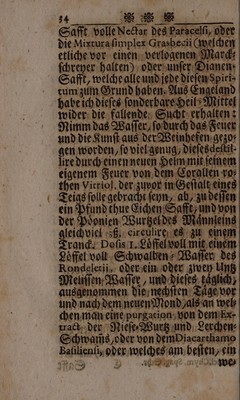 34
Safft volle Nectar des Paracelsi, oder
die Mixtura simplex Grasbecii (welchen
etliche vor einen verlogenen Marck-
schreyer halten) oder unser Dianen-
Safft, welche alle und jede diesen Spiri-
tum zum Grund haben. Aus Engeland
habe ich dieses sonderbare Heil-Mittel
wider die fallende Sucht erhalten:
Nimm das Wasser, so durch das Feuer
und die Kunst aus der Weinhefen gezo-
gen worden, so viel genug, dieses destil-
lire durch einen neuen Helm mit seinem
eigenem Feuer von dem Corallen ro-
then Vitriol, der zuvor in Gestalt eines
Teigs solle gebracht seyn, ab, zu dessen
ein Pfund thue Eichen Safft, und von
der Pöonien Wurtzel des Männleins
gleichviel ℥. circulire es zu einem
Tranck. Dosis 1. Löffel voll mit einem
Löffel voll Schwalben-Wasser des
Rondeletii, oder ein oder zwey Untz
Melissen-Wasser, und dieses täglich,
ausgenommen die nechsten Tage vor
und nach dem neuen Mond, als an wel-
chen man eine purgation von dem Ex-
tract der Niese-Wurtz und Lerchen-
Schwams, oder von dem Diacarthamo
Basiliensi, oder welches am besten, ein
we-